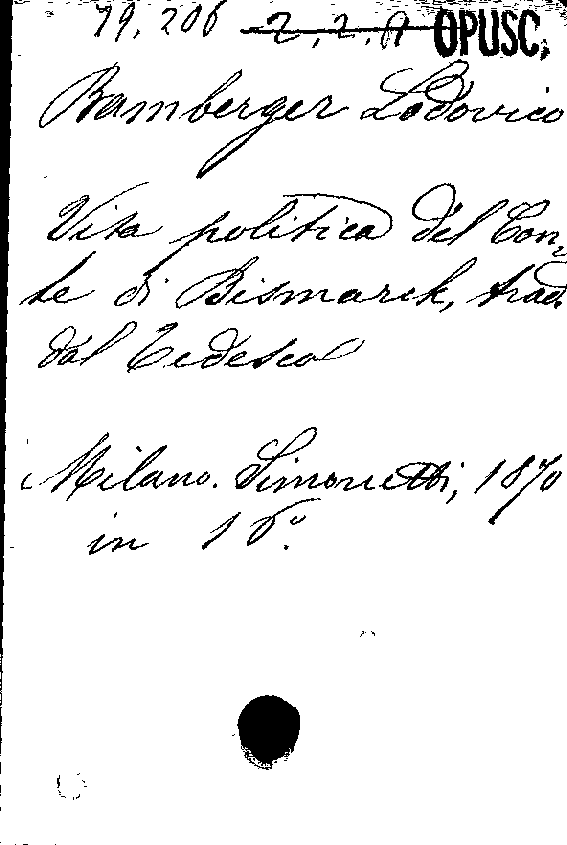 79. 206 2. 2. A OPUSC.
Bamberger Lodovico
Vita politica del Con-
te di Bismarck, trad.
dal Tedesco
Milano. Simonetti, 1870
in 16º.